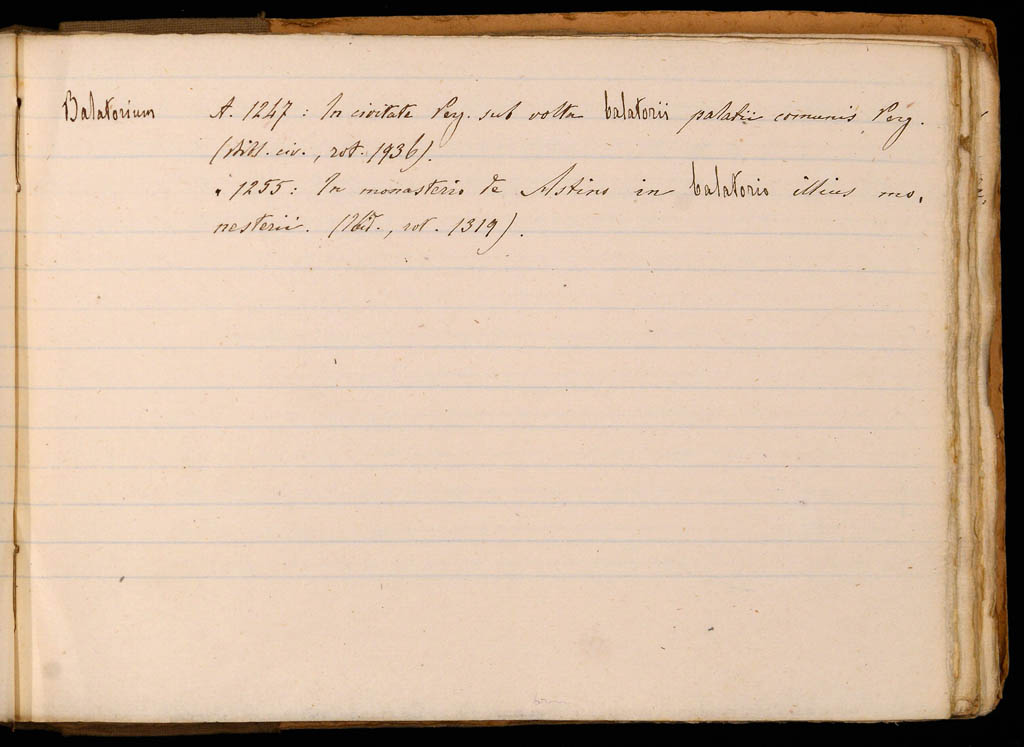 Balatorium A. 1247: In civitate Perg. sub volta balatorii palatii comunis Perg.
(Bibl. civ., rot. 1936).
" 1255: In monasterio de Astino in balatorio illius mo-
nesterii. (Ibid., rot. 1319).